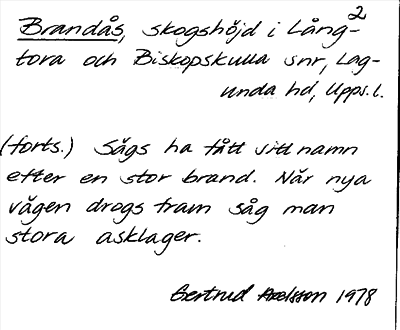 2
Brandås, skogshöjd i Lång-
tora och Biskopskulla snr, Lag-
unda hd, Upps. l.
(forts.) Sägs ha fått sitt namn
efter en stor brand. När nya
vägen drogs fram såg man
stora asklager.
Gertrud Axelsson 1978